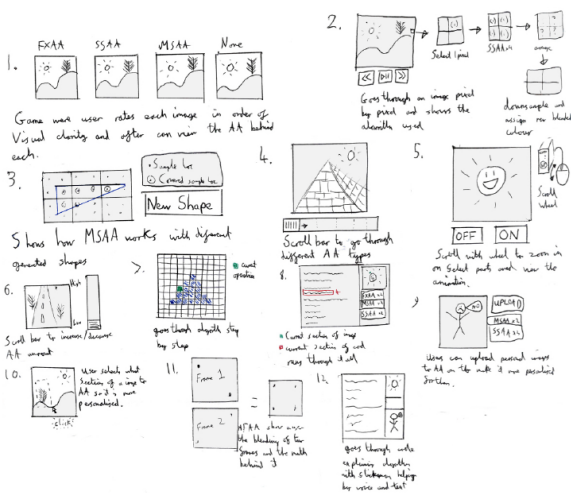 FXAA SSAA MSAA None
1.
Game were user rates each image in order of
Visual clarity and after can view the AA behind
each.
2.
Select 1 pixel
SSAA x4
average
Goes through an image pixel
by pixel and shows the
algorithm used
downsample and
assign new blended
colour
3.
Sample loc
Covered sample loc
New Shape
Shows how MSAA works with different
generated shapes
4.
Scroll bar to go through
different AA types
5.
Scroll
wheel
OFF ON
Scroll with wheel to zoom in
on Select parts and view the
animation.
6.
High
Low
Scroll bar to increase/decrease
AA amount
7.
current
operation
goes through algorithm step
by step
8.
FXAA x2
MSAA x2
SSAA x2
current section of image
current section of code
runs through it all
9
UPLOAD
MSAA x2
SSAA x2
Users can upload personal images
to AA on the make it more personalised
for them.
10.
user selects what
section of image to
AA so it is more
personalised.
click
11.
Frame 1
Frame 2
=
show
the blending of two
frames and the math
behind it
12.
goes through
explaining algorithm
with stickman helping
by voice and text